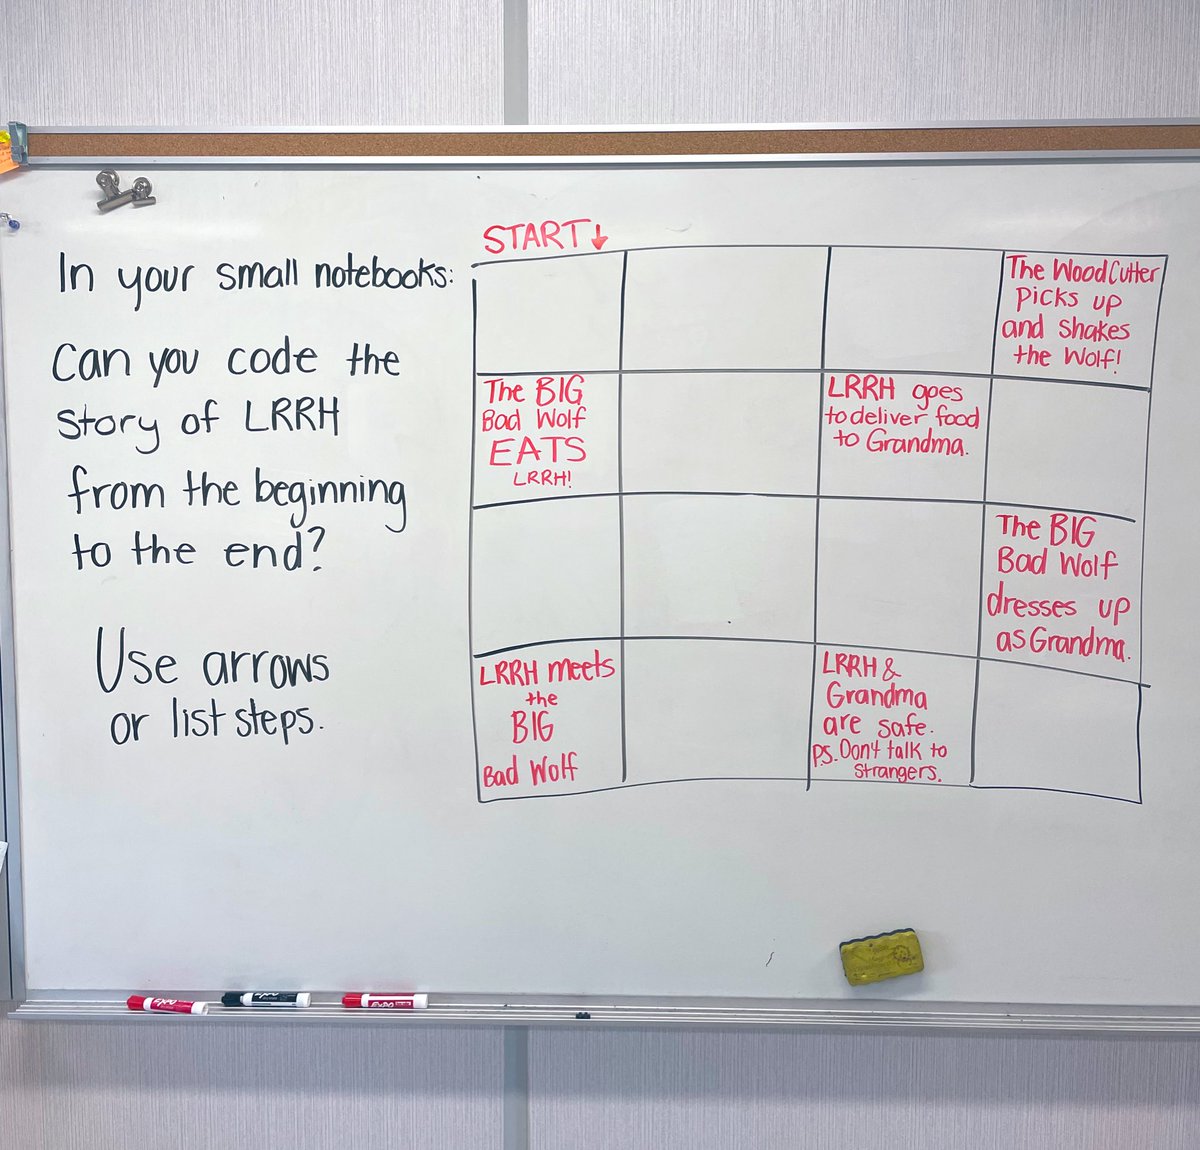 In your small notebooks:
Can you code the
story of LRRH
from the beginning
to the end?
Use arrows
or list steps.
START↓
The WoodCutter
Picks up
and shakes
the Wolf!
The BIG
Bad Wolf
EATS
LRRH!
LRRH goes
to deliver food
to Grandma.
The BIG
Bad Wolf
dresses up
as Grandma.
LRRH meets
the
BIG
Bad Wolf
LRRH &
Grandma
are safe.
PS. Don't talk to
Strangers.
EXPO
EXPO
EXPO